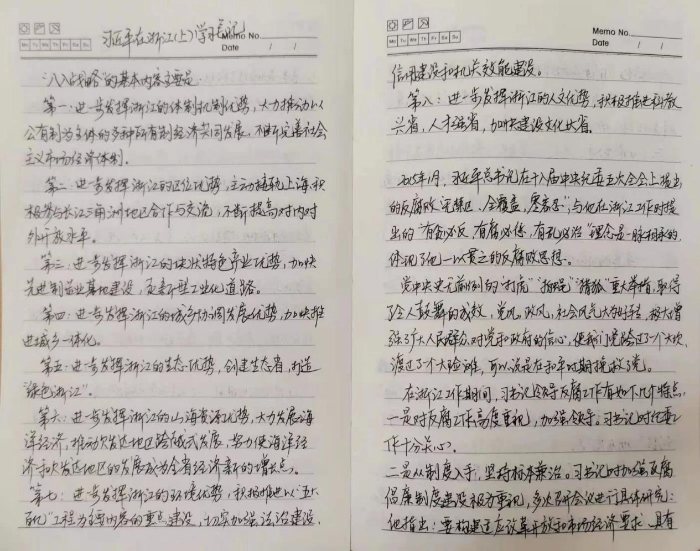 Memo No.
Mo Tu We Th Fr Sa Su
Date / /
习近平在浙江(上)学习笔记
"八八战略"的基本内容主要是:
第一:进一步发挥浙江的体制机制优势,大力推动以
公有制为主体的多种所有制经济共同发展,不断完善社会
主义市场经济体制。
第二:进一步发挥浙江的区位优势,主动接轨上海、积
极参与长江三角洲地区合作与交流,不断提高对内对
外开放水平。
第三:进一步发挥浙江的块状特色产业优势,加快
先进制造业基地建设,走新型工业化道路。
第四:进一步发挥浙江的城乡协调发展优势,加快推
进城乡一体化。
第五:进一步发挥浙江的生态优势,创建生态省,打造
"绿色浙江"。
第六:进一步发挥浙江的山海资源优势,大力发展海
洋经济,推动欠发达地区跨越式发展,努力使海洋经
济和欠发达地区的发展成为全省经济新的增长点。
第七:进一步发挥浙江的环境优势,积极推进以"五大
百亿"工程为主要内容的重点建设,切实加强法治建设、
Memo No.
Mo Tu We Th Fr Sa Su
Date / /
信用建设和机关效能建设。
第八:进一步发挥浙江的人文优势,积极推进科教
兴省,人才强省,加快建设文化大省。
2015年1月,习近平总书记在十八届中央纪委五次全会上提出
的反腐败"无禁区、全覆盖、零容忍",与他在浙江工作时提
出的"有贪必反 有腐必惩 有乱必治"理念是一脉相承的,
体现了他一以贯之的反腐败思想。
党中央史无前例的"打虎""拍蝇""猎狐"重大举措,取得
了令人鼓舞的成效,党风、政风、社会风气大为好转,极大增
强了广大人民群众对党和政府的信心,使我们党跨过了一个大坎,
渡过了一个大险滩,可以说是在和平时期挽救了党。
在浙江工作期间,习书记领导反腐工作有如下几个特点
一是对反腐工作高度重视,加强领导。习书记对纪委工
作十分关心。
二是从制度入手,坚持标本兼治。习书记对加强反腐
倡廉制度建设极为重视,多次召开会议进行具体研究;
他指出:要构建适应改革开放和市场经济要求、具有